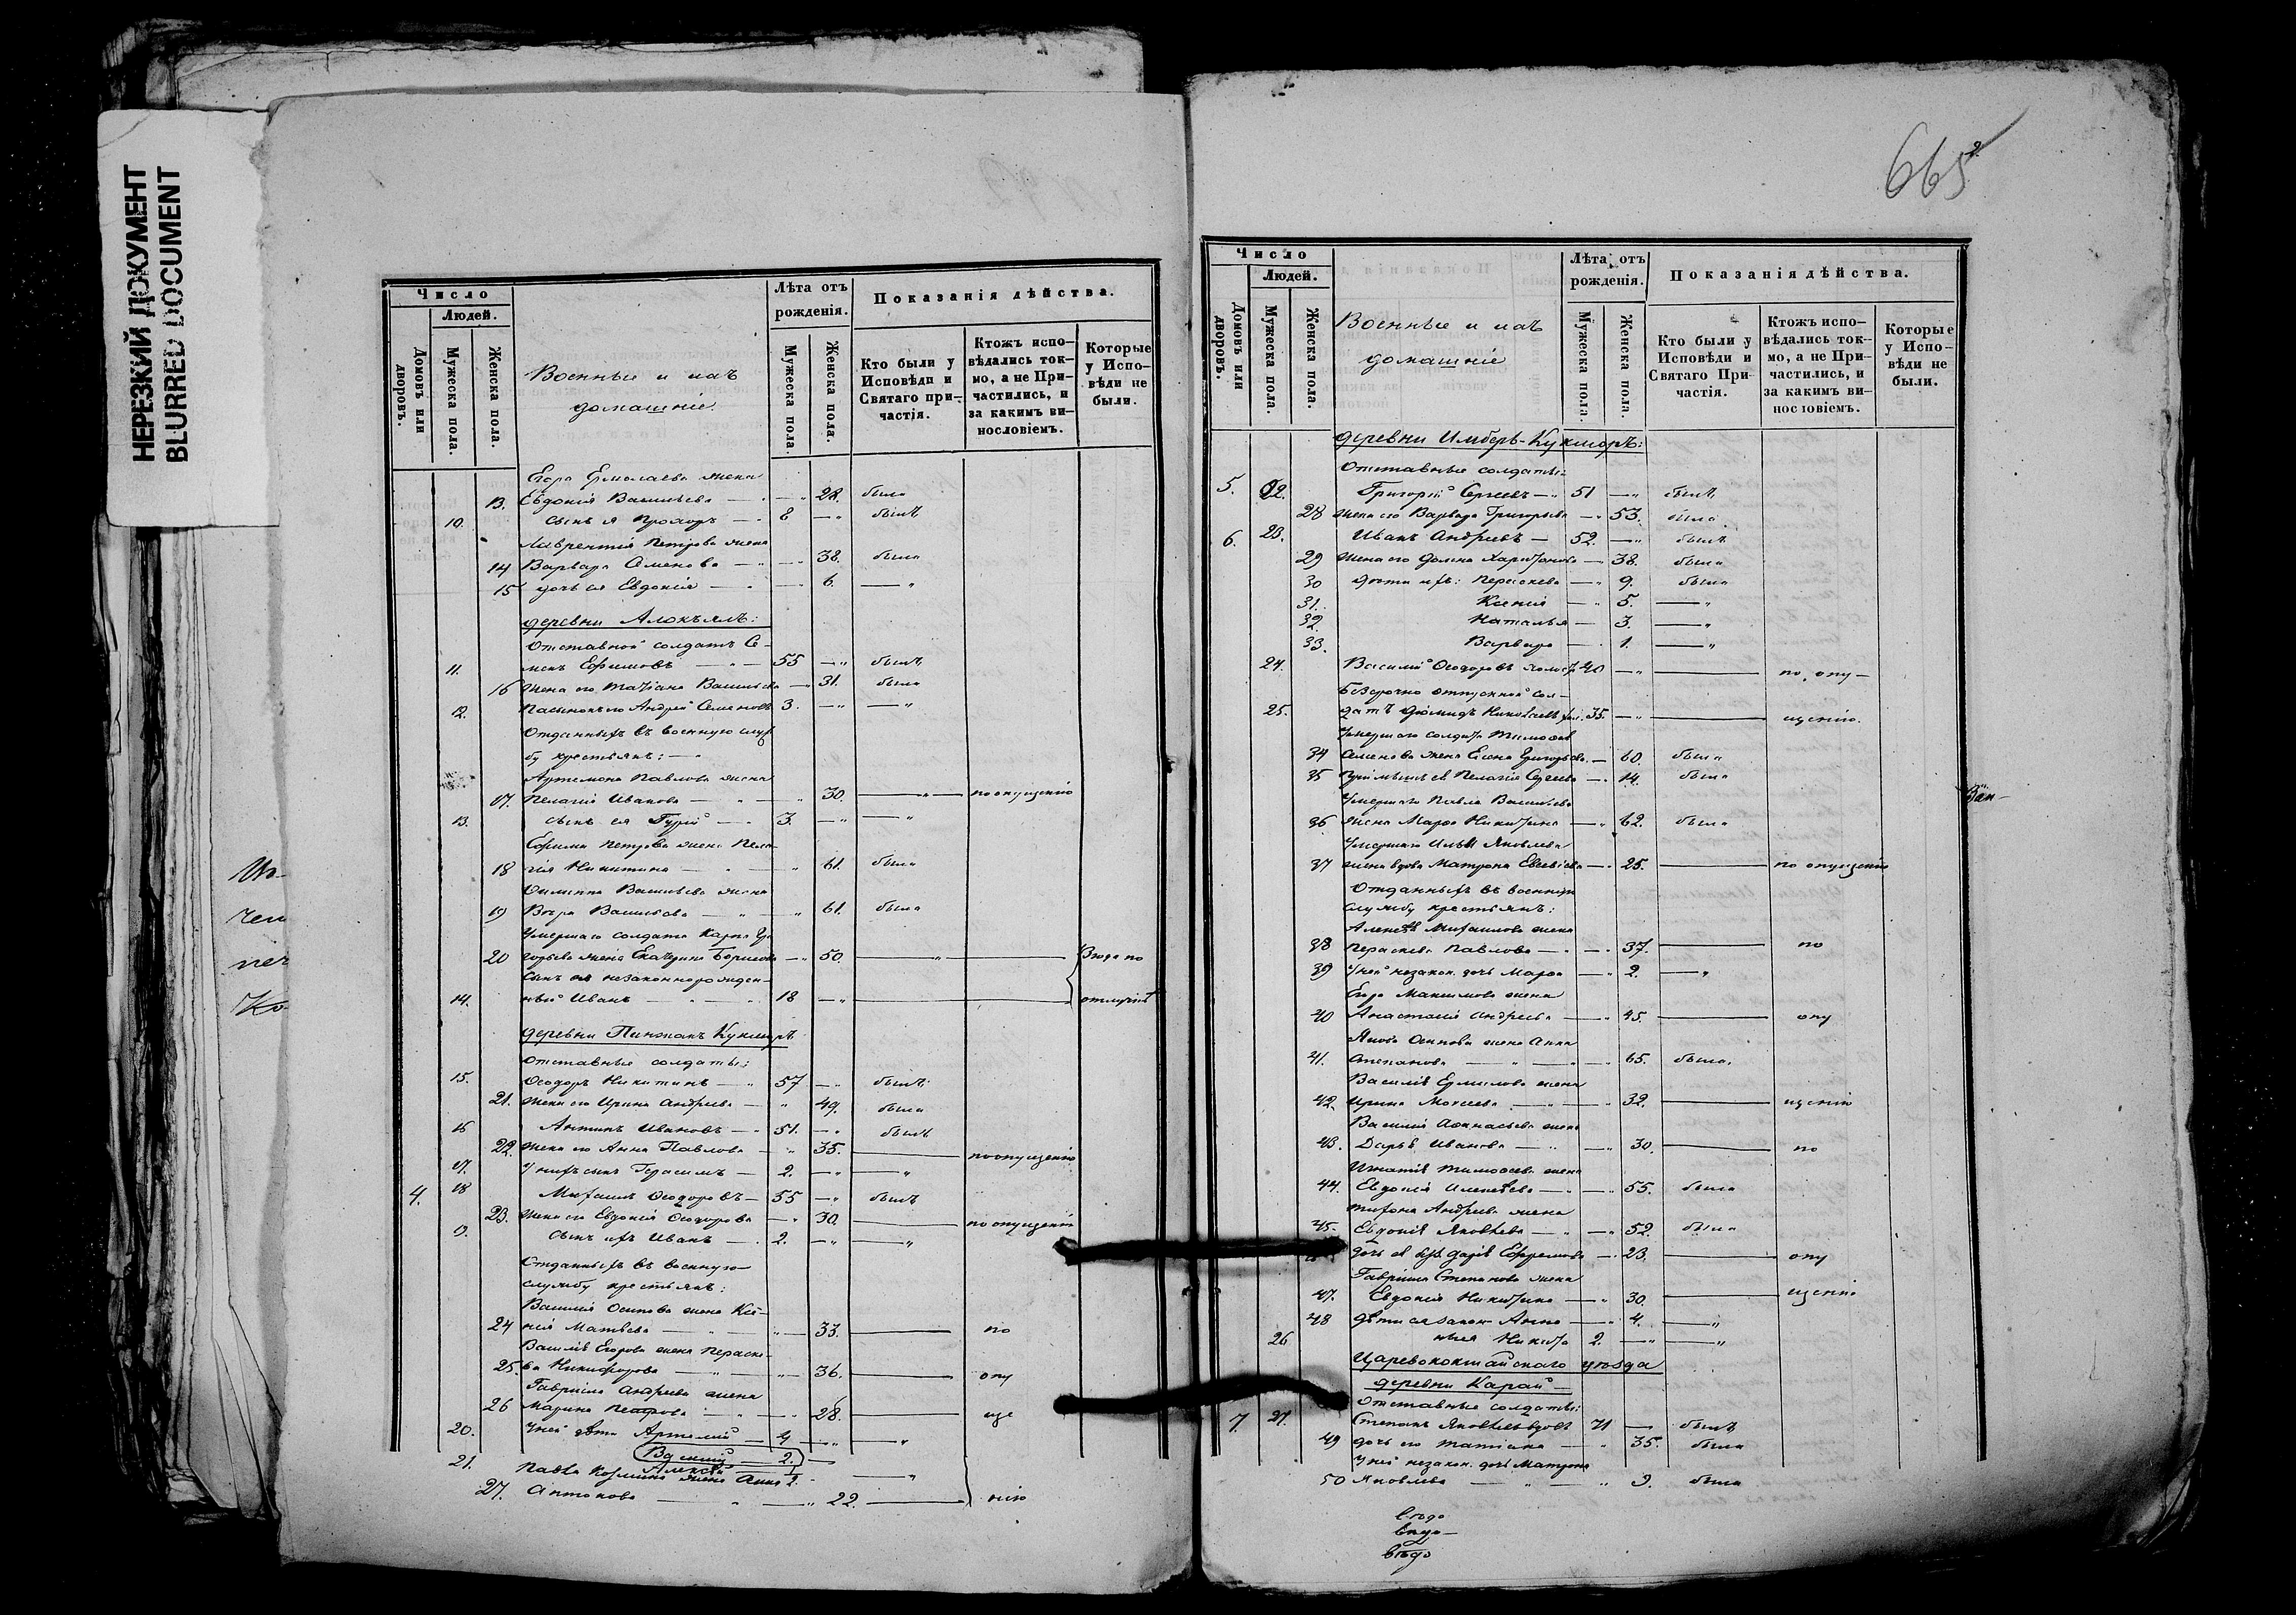 НЕРЕЗКИЙ ДОКУМЕНТ
BLURRED DOCUMENT
Число
Людей.
Домовъ или дворовъ.
Мужеска пола.
Женска пола.
Военные и ихъ
домашніе.
Лѣта отъ рожденія.
Мужеска пола
Женска пола.
Показанія дѣйства.
Кто были у Исповѣди и Святаго при-частія.
Ктожъ испо-вѣдались ток-мо, а не При-частились, и за какимъ ви-нословіемъ.
Которые у Испо-вѣди не были.
Егора Ермолаева жена
13. Евдокія Васильева — 22. была
10. сынъ ея Прохоръ — 8 — былъ
Лаврентія Петрова жена
14 Варвара Семенова — 38. была
15 дочь ея Евдокія — 6. — "
деревни Алокъялъ:
Отставной солдатъ Се-
11. менъ Ефимовъ — 55 — былъ
16 жена его Татіана Васильева — 31. была
12. Пасынокъ его Андрей Семеновъ 3. — "
Отданныхъ въ военную служ
бу крестьянъ:
Артемона Павлова жена
17. Пелагія Иванова — 30. — по опущенію
13. сынъ ея Гурій — 3. — "
Ефима Петрова жена Пела-
18 гія Никитина — 61. была
Филиппа Васильева жена
19 Вѣра Васильева — 61. была
Умершаго солдата Карпа Гри
20 горьева жена Екатерина Борисова — 50. — по
сынъ ея незаконнорожден-
14. ный Иванъ — 18 — отлучкѣ
деревни Пинжанъ Кукморъ
Отставные солдаты:
15. Ѳеодоръ Никитинъ — 57 — былъ
21. жена его Ирина Андреева — 49. была
16 Антипъ Ивановъ — 51. — былъ
22. жена его Анна Павлова — 35. — по опущенію
17. У нихъ сынъ Герасимъ — 2. — "
4. 18 Михаилъ Ѳеодоровъ — 55 — былъ
23. жена его Евдокія Ѳеодорова — 30. — по опущенію
19. сынъ ихъ Иванъ — 2. — "
Отданныхъ въ военную
службу крестьянъ:
Василія Осипова жена Ксе-
24 нія Матвѣева — 33. — по
Василія Егорова жена Параске-
25. ва Никифорова — 36. — опу
Гавріила Андреева жена
26 Марина Петрова — 28. — ще
20. У ней дѣти Артемій — 4 — "
Василій — 2. —
21. Алексѣй 2. — "
Павла Козмина жена Анна
27. Антонова — 22. — нію
665
2.
Число
Людей.
Домовъ или дворовъ.
Мужеска пола.
Женска пола.
Военные и ихъ
домашніе
Лѣта отъ рожденія.
Мужеска пола.
Женска пола.
Показанія дѣйства.
Кто были у Исповѣди и Святаго При-частія.
Ктожъ испо-вѣдались ток-мо, а не При-частились, и за какимъ ви-нословіемъ.
Которые у Испо-вѣди не были.
деревни Имберь-Кукморъ:
Отставные солдаты:
5. 22. Григорій Сергеевъ — 51 — былъ
28 жена его Варвара Григорьева — 53. была
6. 23. Иванъ Андреевъ — 52. — былъ
29 жена его Домна Харитонова — 38. была
30 дѣти ихъ: Параскева — 9. была
31. Ксенія — 5. — "
32. Наталья — 3. — "
33. Варвара — 1. — "
24. Василій Ѳеодоровъ холост 40 — по опу-
Безсрочно отпускной сол-
25. датъ Діомидъ Николаевъ 35. — щенію.
Умершаго солдата Тимофея
34 Семенова жена Елена Григорьева — 60. была
35 Пріемышъ ея Пелагія Сергеева — 14. была
Умершаго Павла Васильева
36 жена Марфа Никитина — 62. была
Умершаго Ильи Яковлева
37 жена вдова Матрона Евсевіева — 25. — по опущенію
Отданныхъ въ военную
службу крестьянъ:
Алексѣя Михайлова жена
38 Параскева Павлова — 37. — по
39 У ней незакон. дочь Марфа — 2. — "
Егора Максимова жена
40 Анастасія Андреева — 45. — опу
Якова Осипова жена Анна
41. Степанова — 65. была.
Василія Ермилова жена
42. Ирина Моисеева — 32. — щенію
Василія Афанасьева жена
43. Дарья Иванова — 30. — по
Игнатія Тимофеева жена
44. Евдокія Алексѣева — 55. была
Тихона Андреева жена
45. Евдокія Яковлева — 52. была
дочь ея Дарія Ефремова — 23. — опу
Гавріила Степанова жена
47. Евдокія Никитина — 30. — щенію
48 дѣти ея закон Анна — 4. — "
26 ные Никита 2. — "
Царевококшайскаго уѣзда
деревни Карай —
Отставные солдаты:
7. 27. Степанъ Яковлевъ вдовъ 71 — былъ
49 дочь его Татіана — 35. была
У ней незакон. дочь Матрона
50 Яковлева — 9. была